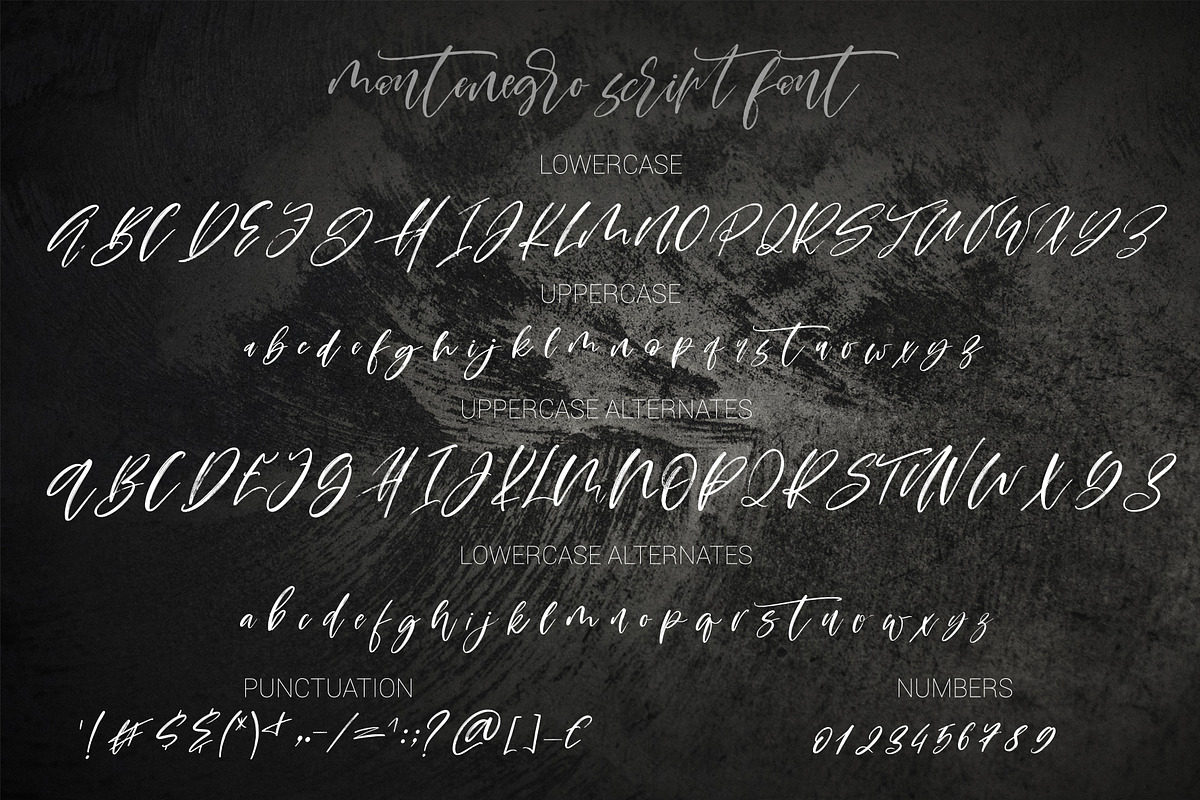 montenegro script font
LOWERCASE
A B C D E F G H I J K L M N O P Q R S T U V W X Y Z
UPPERCASE
a b c d e f g h i j k l m n o p q r s t u v w x y z
UPPERCASE ALTERNATES
A B C D E F G H I J K L M N O P Q R S T U V W X Y Z
LOWERCASE ALTERNATES
a b c d e f g h i j k l m n o p q r s t u v w x y z
PUNCTUATION NUMBERS
'!#$&(*)+,.-/=^:;?@[]_£ 0123456789